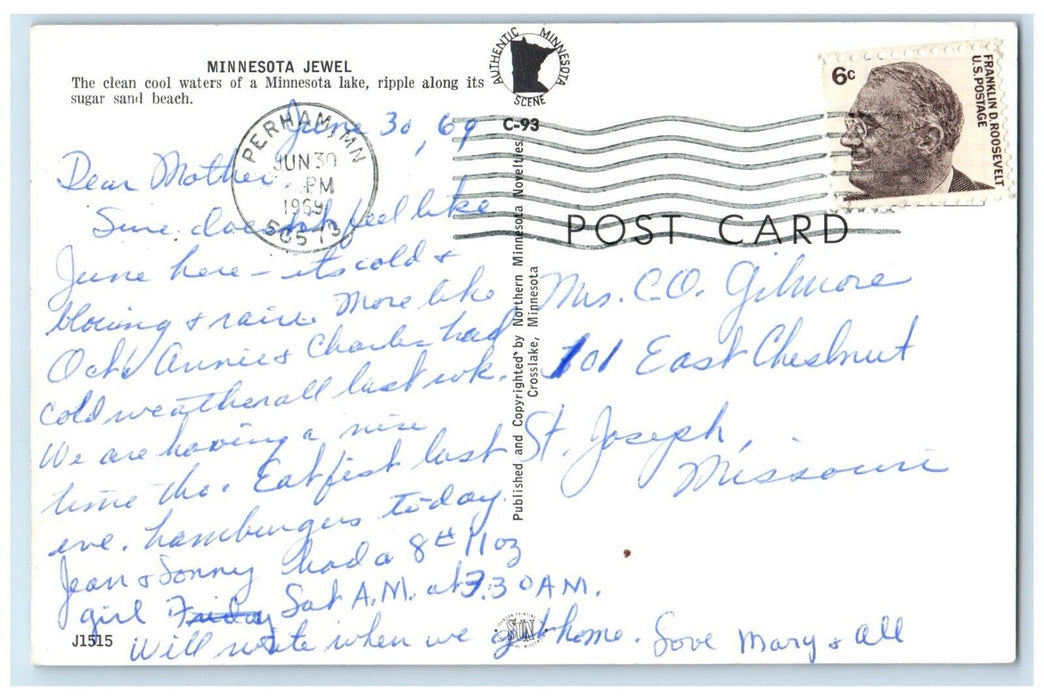 MINNESOTA JEWEL
The clean cool waters of a Minnesota lake, ripple along its
sugar sand beach.
AUTHENTIC MINNESOTA
SCENE
C-93
6c
FRANKLIN D. ROOSEVELT
U.S. POSTAGE
PERHAM, MN
JUN 30
PM
1969
56573
POST CARD
Published and Copyrighted by Northern Minnesota Novelties
Crosslake, Minnesota
June 30, 69
Dear Mother,
Sure doesn't feel like
June here - its cold &
blowing & rain. More like
Oct. Annie & Charles had
cold weather all last wk.
We are having a nice
time tho. Eat fish last
eve. hamburgers today.
Jean & Sonny had a 8# 11 oz
girl Friday Sat A.M. at 7.30 AM.
Will write when we get home. Love Mary & all
Mrs. C.O. Gilmore
101 East Chestnut
St. Joseph,
Missouri
J1515
SUN